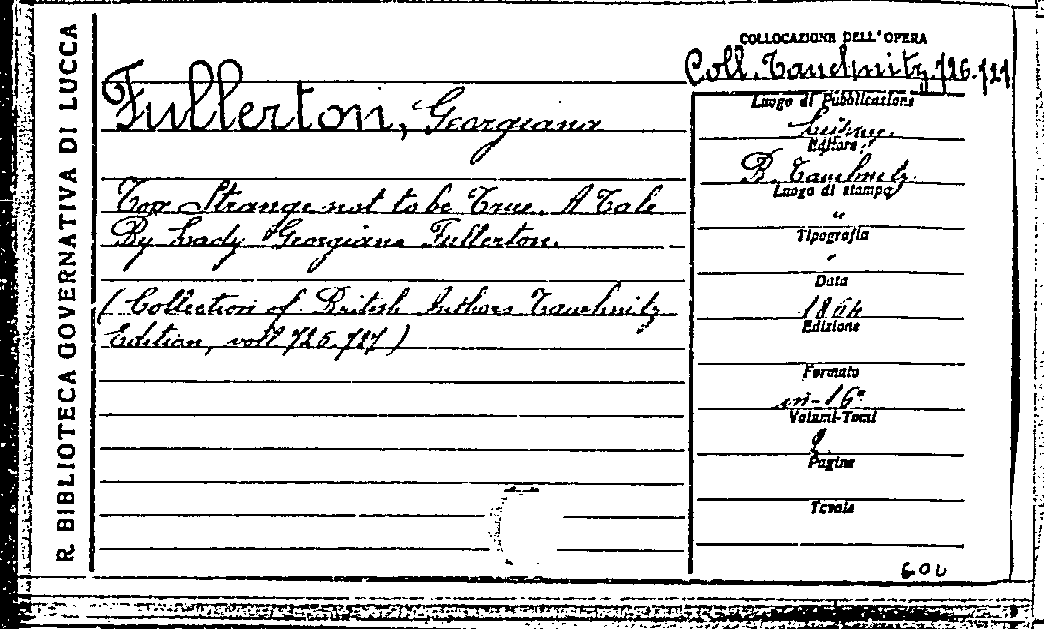 R. BIBLIOTECA GOVERNATIVA DI LUCCA
Fullerton, Georgiana
Too Strange not to be True. A Tale
By Lady Georgiana Fullerton.
(Collection of British Authors Tauchnitz
Edition, voll 726, 727)
COLLOCAZIONE DELL'OPERA
Coll. Tauchnitz, 726. 727
Luogo di Pubblicazione
Editore
B. Tauchnitz
Luogo di stampa
"
Tipografia
"
Data
1864
Edizione
Formato
in-16º
Volumi-Tomi
2
Pagine
Tavole